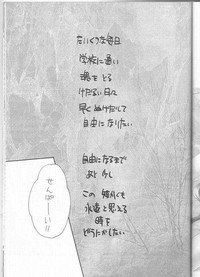 たいくつな毎日
学校に通い
をとる
けだるい日々
早くぬけだして
自由になりたい
自由になるまで
あと少し
この くも
永遠と思える
時を
どうにかしたい
せんぱーい!!